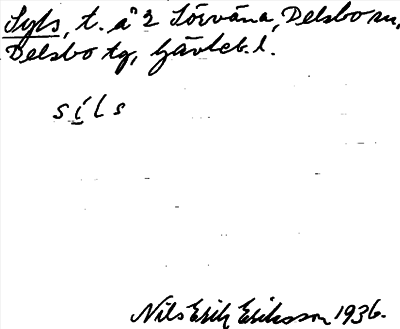 Syls, t. å 2 Sörvåna, Delsbo sn,
Delsbo tg, Gävleb. l.
síls
Nils Erik Eriksson 1936.